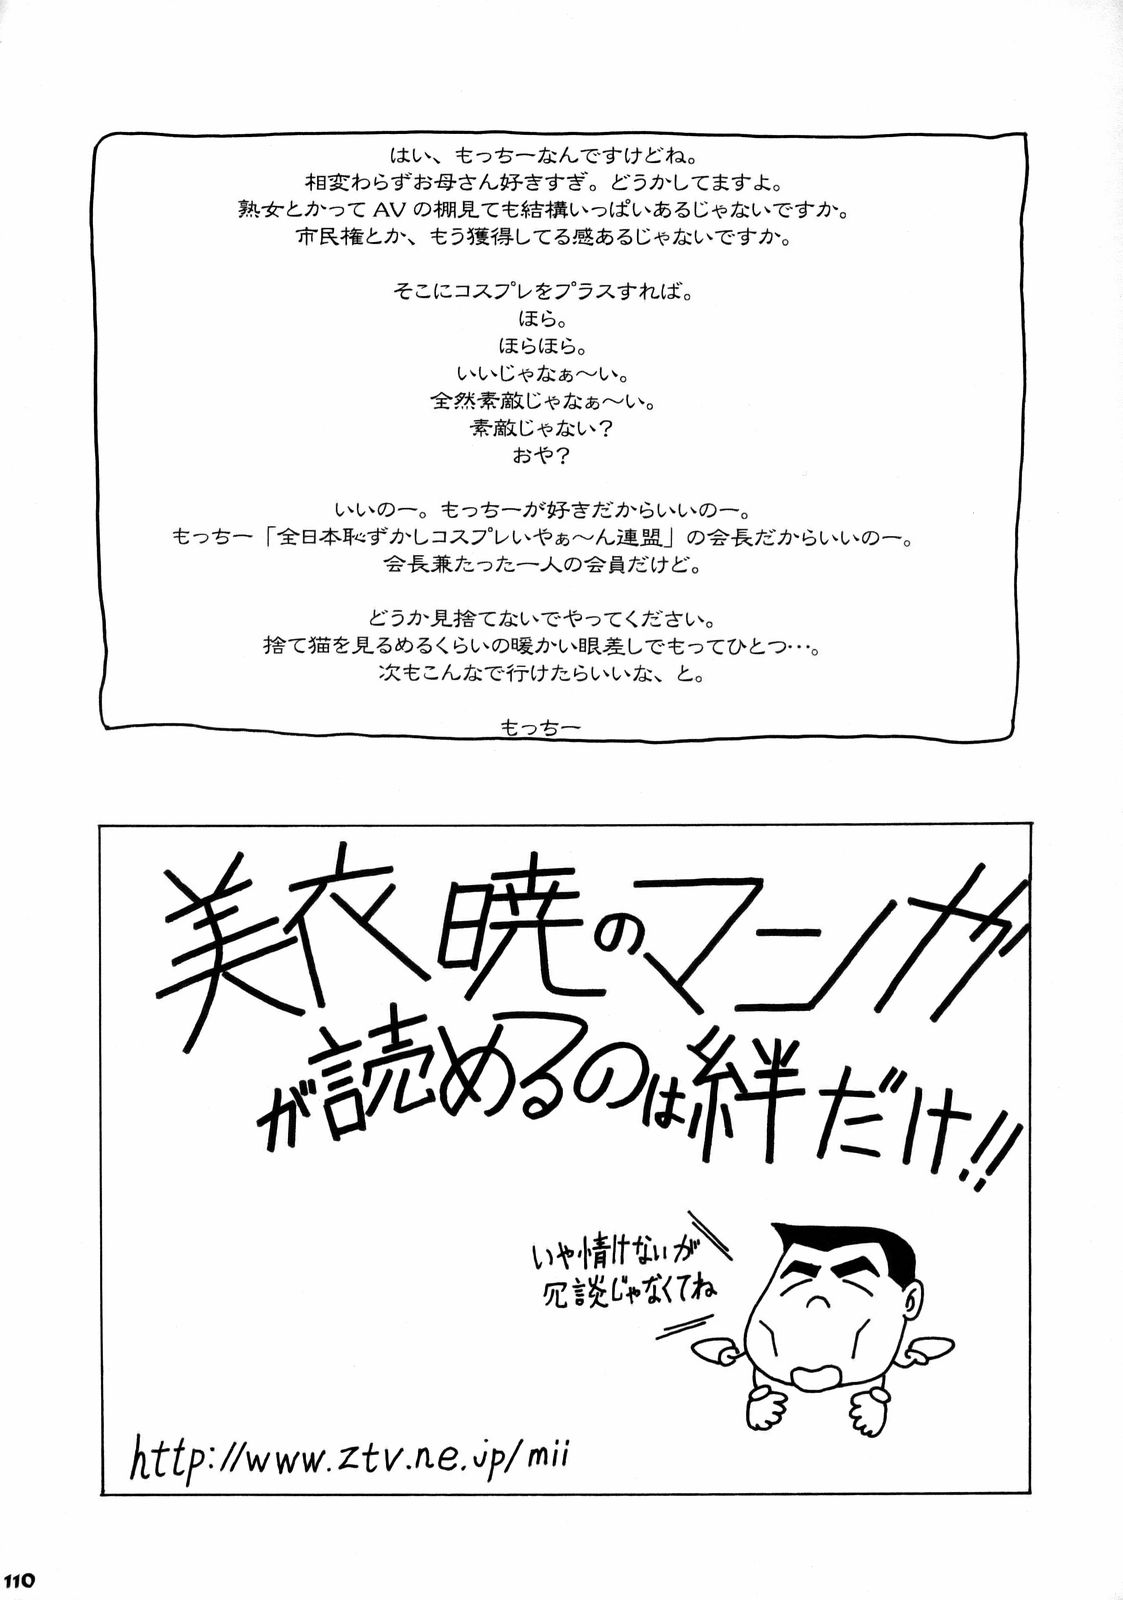 はい、もっちーなんですけどね。
相変わらずお母さん好きすぎ。どうかしてますよ。
熟女とかってAVの棚見ても結構いっぱいあるじゃないですか。
市民権とか、もう獲得してる感あるじゃないですか。
そこにコスプレをプラスすれば。
ほら。
ほらほら。
いいじゃなぁ～い。
全然素敵じゃなぁ～い。
素敵じゃない？
おや？
いいのー。もっちーが好きだからいいのー。
もっちー「全日本恥ずかしコスプレいやぁ～ん連盟」の会長だからいいのー。
会長兼たった一人の会員だけど。
どうか見捨てないでやってください。
捨て猫を見るめるくらいの暖かい眼差しでもってひとつ…。
次もこんなで行けたらいいな、と。
もっちー
美衣暁のマンガ
が読めるのは絆だけ!!
いや情けないが
冗談じゃなくてね
http://www.ztv.ne.jp/mii
110